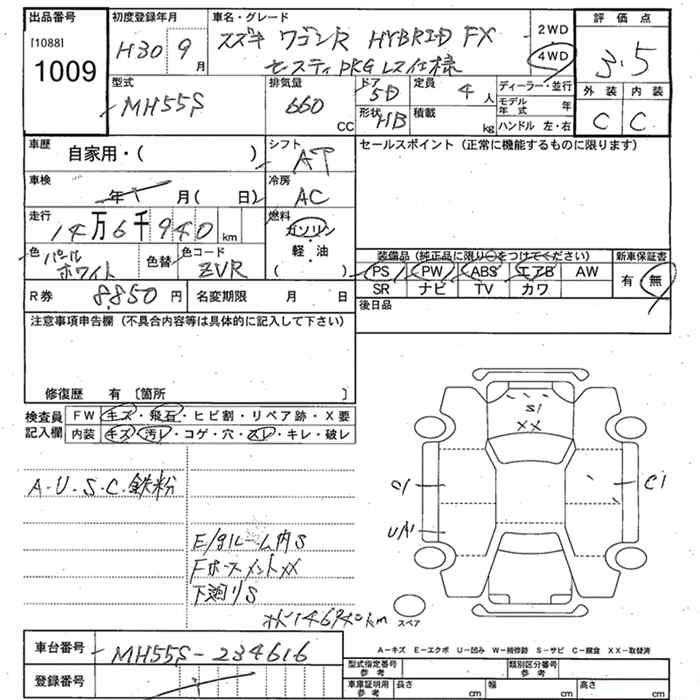 出品番号
[1088]
1009
初度登録年月
H30 9月
車名・グレード
スズキ ワゴンR HYBRID FX
セーフティPKG レス仕様
2WD
4WD
評価点
3.5
外装 内装
C C
型式
MH55S
排気量
660
CC
ドア
5D
形状
HB
定員
4人
積載
kg
ディーラー・並行
モデル年式 年
ハンドル 左・右
車歴
自家用・( )
シフト
AT
セールスポイント (正常に機能するものに限ります)
車検
年 月( 日)
冷房
AC
走行
14万6千940km
燃料
ガソリン・軽油
( )
色
パールホワイト
色替
色コード
ZVR
装備品 (純正品に限り○をつけてください)
PS PW ABS エアB AW
SR ナビ TV カワ
新車保証書
有・無
R券 8,850円
名変期限 月 日
後日品
注意事項申告欄 (不具合内容等は具体的に記入して下さい)
修復歴 有〔箇所 〕
検査員記入欄
FW キズ・飛石・ヒビ割・リペア跡・X要
内装 キズ・汚レ・コゲ・穴・スレ・キレ・破レ
A・U・S・C・鉄粉
E/gルーム内S
Fホースメント XX
下廻りS
146940km
S1
XX
C1
スペア
A-キズ E-エクボ U-凹み W-補修跡 S-サビ C-腐食 XX-取替済
車台番号
MH55S-234616
登録番号
型式指定番号 参考
類別区分番号 参考
車庫証明用 参考
長さ cm
幅 cm
高さ cm